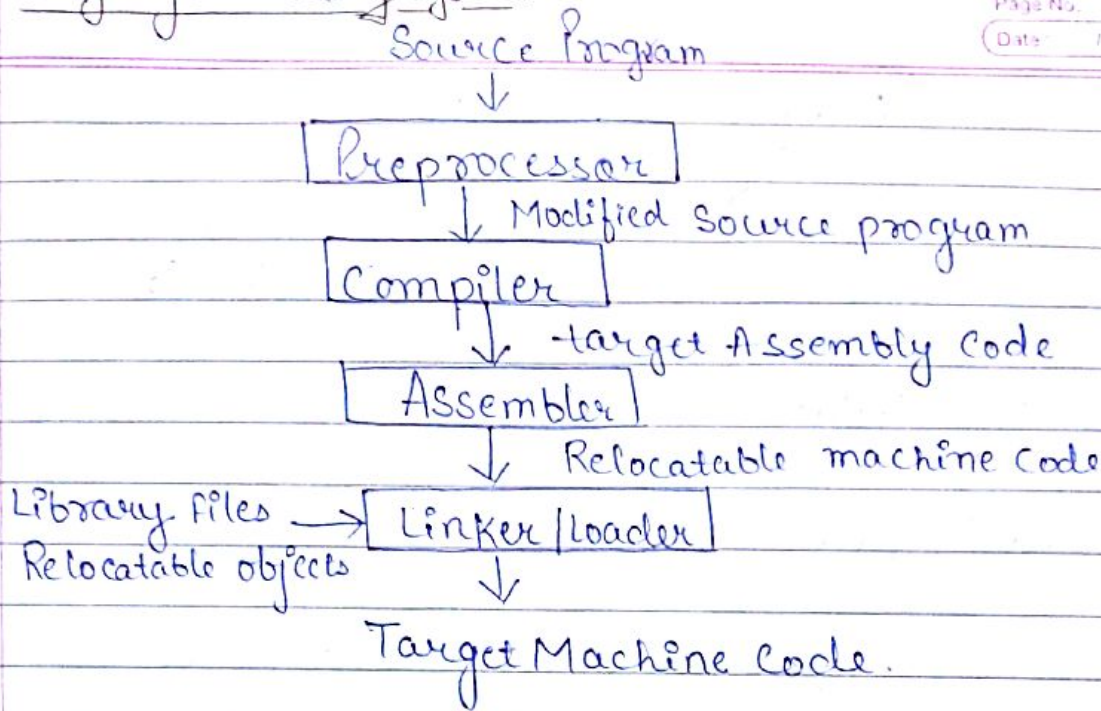 Page No.
Date
Source Program
Preprocessor
Modified Source program
Compiler
target Assembly Code
Assembler
Relocatable machine code
Library files
Linker/Loader
Relocatable objects
Target Machine Code.